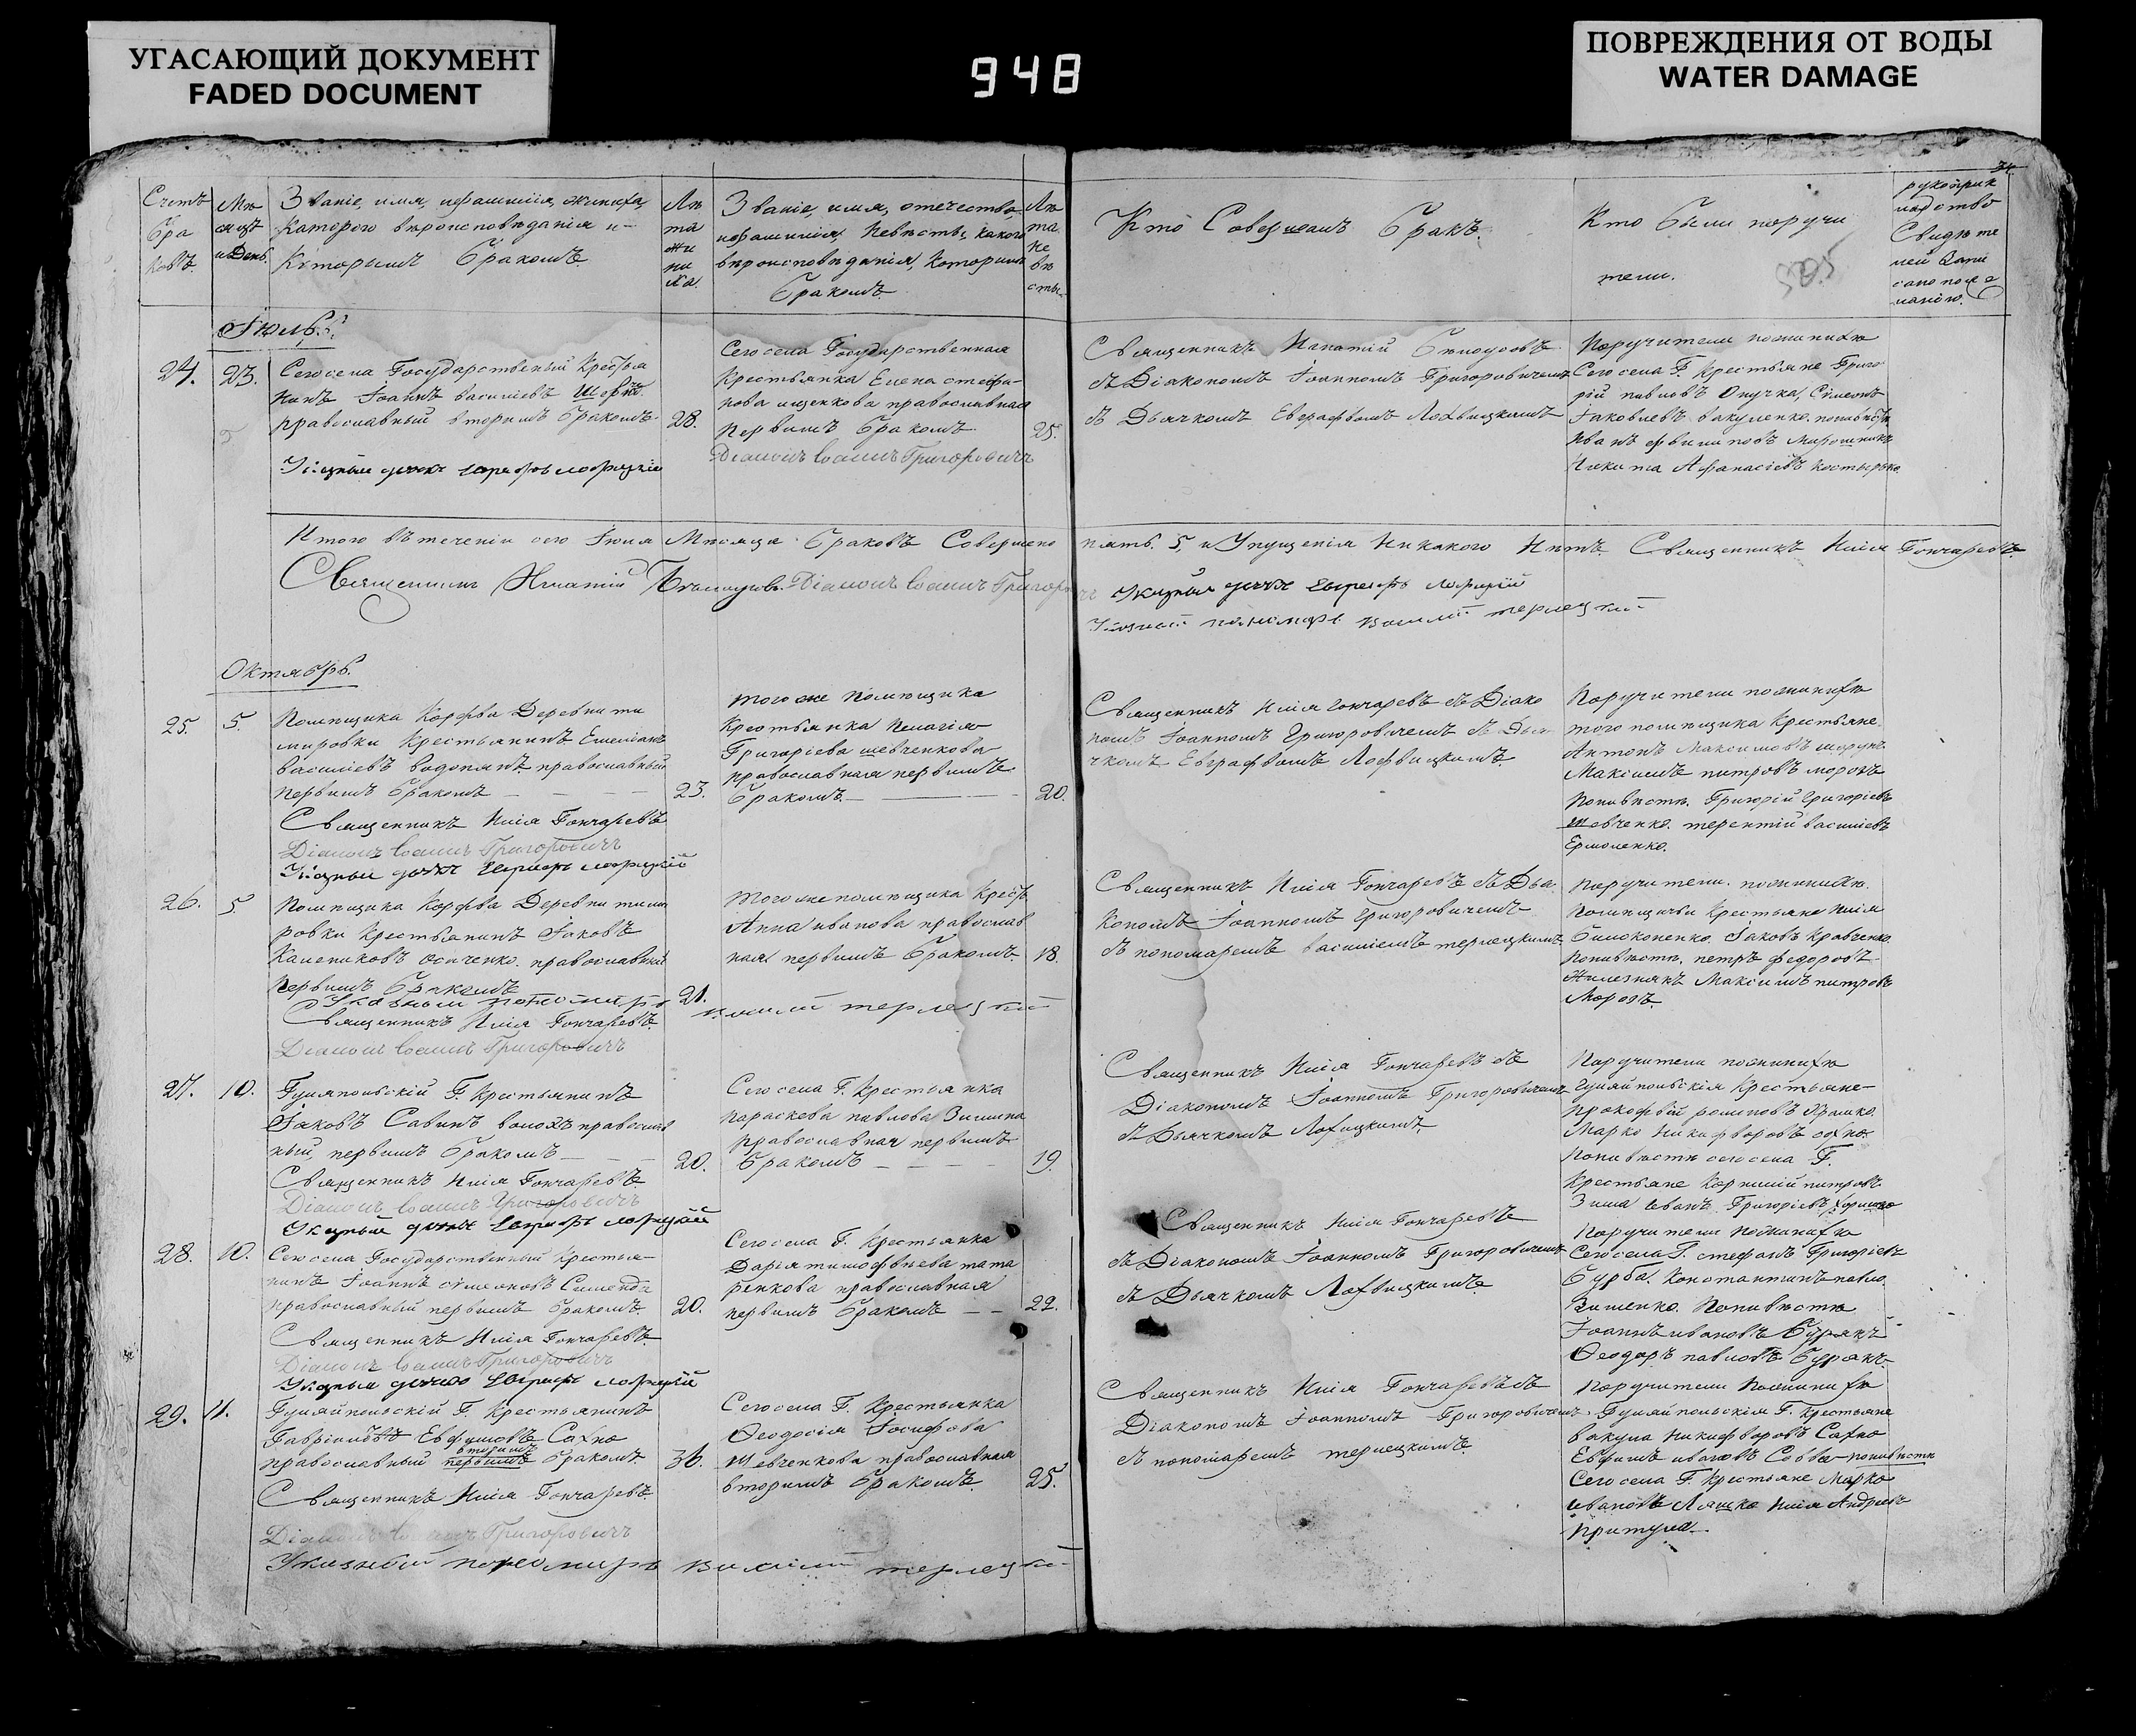 УГАСАЮЩИЙ ДОКУМЕНТ
FADED DOCUMENT
948
ПОВРЕЖДЕНИЯ ОТ ВОДЫ
WATER DAMAGE
Счетъ
бра
ковъ.
Мѣ
сяцъ
и День.
Званіе, имя, ифамилія, жениха,
Катораго вѣроисповѣданія и
Которымъ бракомъ.
Лѣ
та
жи
ни
ха.
Званіе, имя, отечество,
ифамилія, Невѣсты, какого
вѣроисповѣданія, Которымъ
бракомъ.
Лѣ
та
не
вѣ
сты.
Кто Совершалъ бракъ.
Кто были поручи
тели.
рукоприк
ладство
Свидѣте
лей Запи
сано по же
ланію.
Іюль.
24.
23.
Сего села Государственый Крестья
нинъ Іоаннъ василіевъ
православный вторымъ бракомъ.
28.
Сего села Государственная
Крестьянка Елена стефа-
нова ищенкова православная
Первымъ бракомъ.
25.
Діаконъ Іоаннъ Григоровичъ
Священникъ Игнатій
съ Діакономъ Іоанномъ Григоровичемъ
съ Дьячкомъ Евграфомъ Лохвицкимъ
Поручители пожинихѣ
Сего села Г. Крестьяне Григо
рій павловъ Онучка, Сѵмеонъ
Іаковлевъ вакуленко. поневѣстѣ
Иванъ филиповъ Мирошникъ
Никита Афанасіевъ Костырка
Итого въ теченіи сего Іюля Мѣсяца браковъ Совершено пять. 5, и Упущенія Никакого Нѣтъ. Священникъ Илія Гончаревъ.
Священникъ Игнатій Діаконъ Іоаннъ Григоровичъ Указный дьячокъ Евграфъ Лофицкій
Указный пономарь Василій терлецкій
Октябрь.
25.
5.
Помѣщика Корфва Деревни ти
мировки Крестьянинъ Емеліанъ
василіевъ водопянъ православный
первымъ бракомъ
23.
Священникъ Илія Гончаревъ
Діаконъ Іоаннъ Григоровичъ
того же Помѣщика
Крестьянка Пелагія
Григоріева шевченкова
православная первымъ
бракомъ
20.
Священникъ Илія Гончаревъ съ Діако
номъ Іоанномъ Григоровичемъ съ Дья
чкомъ Евграфомъ Лофвицкимъ.
Поручители пожинихѣ
того помѣщика Крестьяне.
Антонъ Максимовъ
Максимъ питровъ морозъ
Поневѣстѣ. Григорій Григоріевъ
шевченко. терентій василіевъ
Ермоленко.
26.
5.
Помѣщика Корфва Деревни тими
ровки Крестьянинъ Іаковъ
православный
первымъ бракомъ
21.
Священникъ Илія Гончаревъ.
Діаконъ Іоаннъ Григоровичъ
того же помѣщика Крест.
Анна иванова православ
ная первымъ бракомъ.
18.
Священникъ Илія Гончаревъ съ Діа
кономъ Іоанномъ Григоровичемъ
съ пономаремъ василіемъ терлецкимъ
Поручители. пожинихѣ.
Помѣщичьи Крестьяне Илія
Іаковъ Кравченко
поневѣстѣ. петръ федоровъ
Жилезнякъ Максимъ питровъ
Морозъ.
27.
10.
Гуляпольскій Г. Крестьянинъ
Іаковъ Савинъ волохъ православ
ный, первымъ бракомъ
20.
Священникъ Илія Гончаревъ
Діаконъ Іоаннъ Григоровичъ
Сего села Г. Крестьянка
параскева павлова Зимина
православная первымъ
бракомъ
19.
Священникъ Илія Гончаревъ съ
Діакономъ Іоанномъ Григоровичемъ
съ Дьячкомъ Лофицкимъ.
Поручители пожинихѣ
Гуляйпольскія Крестьяне
прокофій романовъ
Марко Никифоровъ сахно.
Поневѣстѣ сего села Г.
Крестьяне Корнилій питровъ
Зима иванъ Григоріевъ
28.
10.
Сего села Государственный Крестья
нинъ Іоаннъ сѵмеоновъ
православный первымъ бракомъ.
20.
Священникъ Илія Гончаревъ.
Діаконъ Іоаннъ Григоровичъ
Сего села Г. Крестьянка
Дарія тимофѣева тата
ренкова православная
первымъ бракомъ
22.
Священникъ Илія Гончаревъ
съ Діакономъ Іоанномъ Григоровичемъ
съ Дьячкомъ Лохвицкимъ.
Поручители Пожинихѣ
Сего села Г. стефанъ Григоріевъ
Бурба. Константинъ
Поневѣстѣ
Іоаннъ ивановъ Бурякъ
Ѳеодоръ павловъ Бурякъ
29.
11.
Гуляйпольскій Г. Крестьянинъ
Гавріилъ Евфимовъ Сахно
вторымъ
православный первымъ бракомъ
36.
Священникъ Илія Гончаревъ.
Діаконъ Іоаннъ Григоровичъ
Указный пономарь василій терлецкій
Сего села Г. Крестьянка
Ѳеодосія Іосифова
Шевченкова православная
вторымъ бракомъ.
25.
Священникъ Илія Гончаревъ съ
Діакономъ Іоанномъ Григоровичемъ
съ пономаремъ терлецкимъ.
Поручители Пожинихѣ
Гуляйпольскія Г. Крестьяне
вакула Никифоровъ Сахно
Евфимъ ивановъ Савва поневѣстѣ
Сего села Г. Крестьяне Марко
ивановъ Ляшко Илія Андреевъ
Притула.